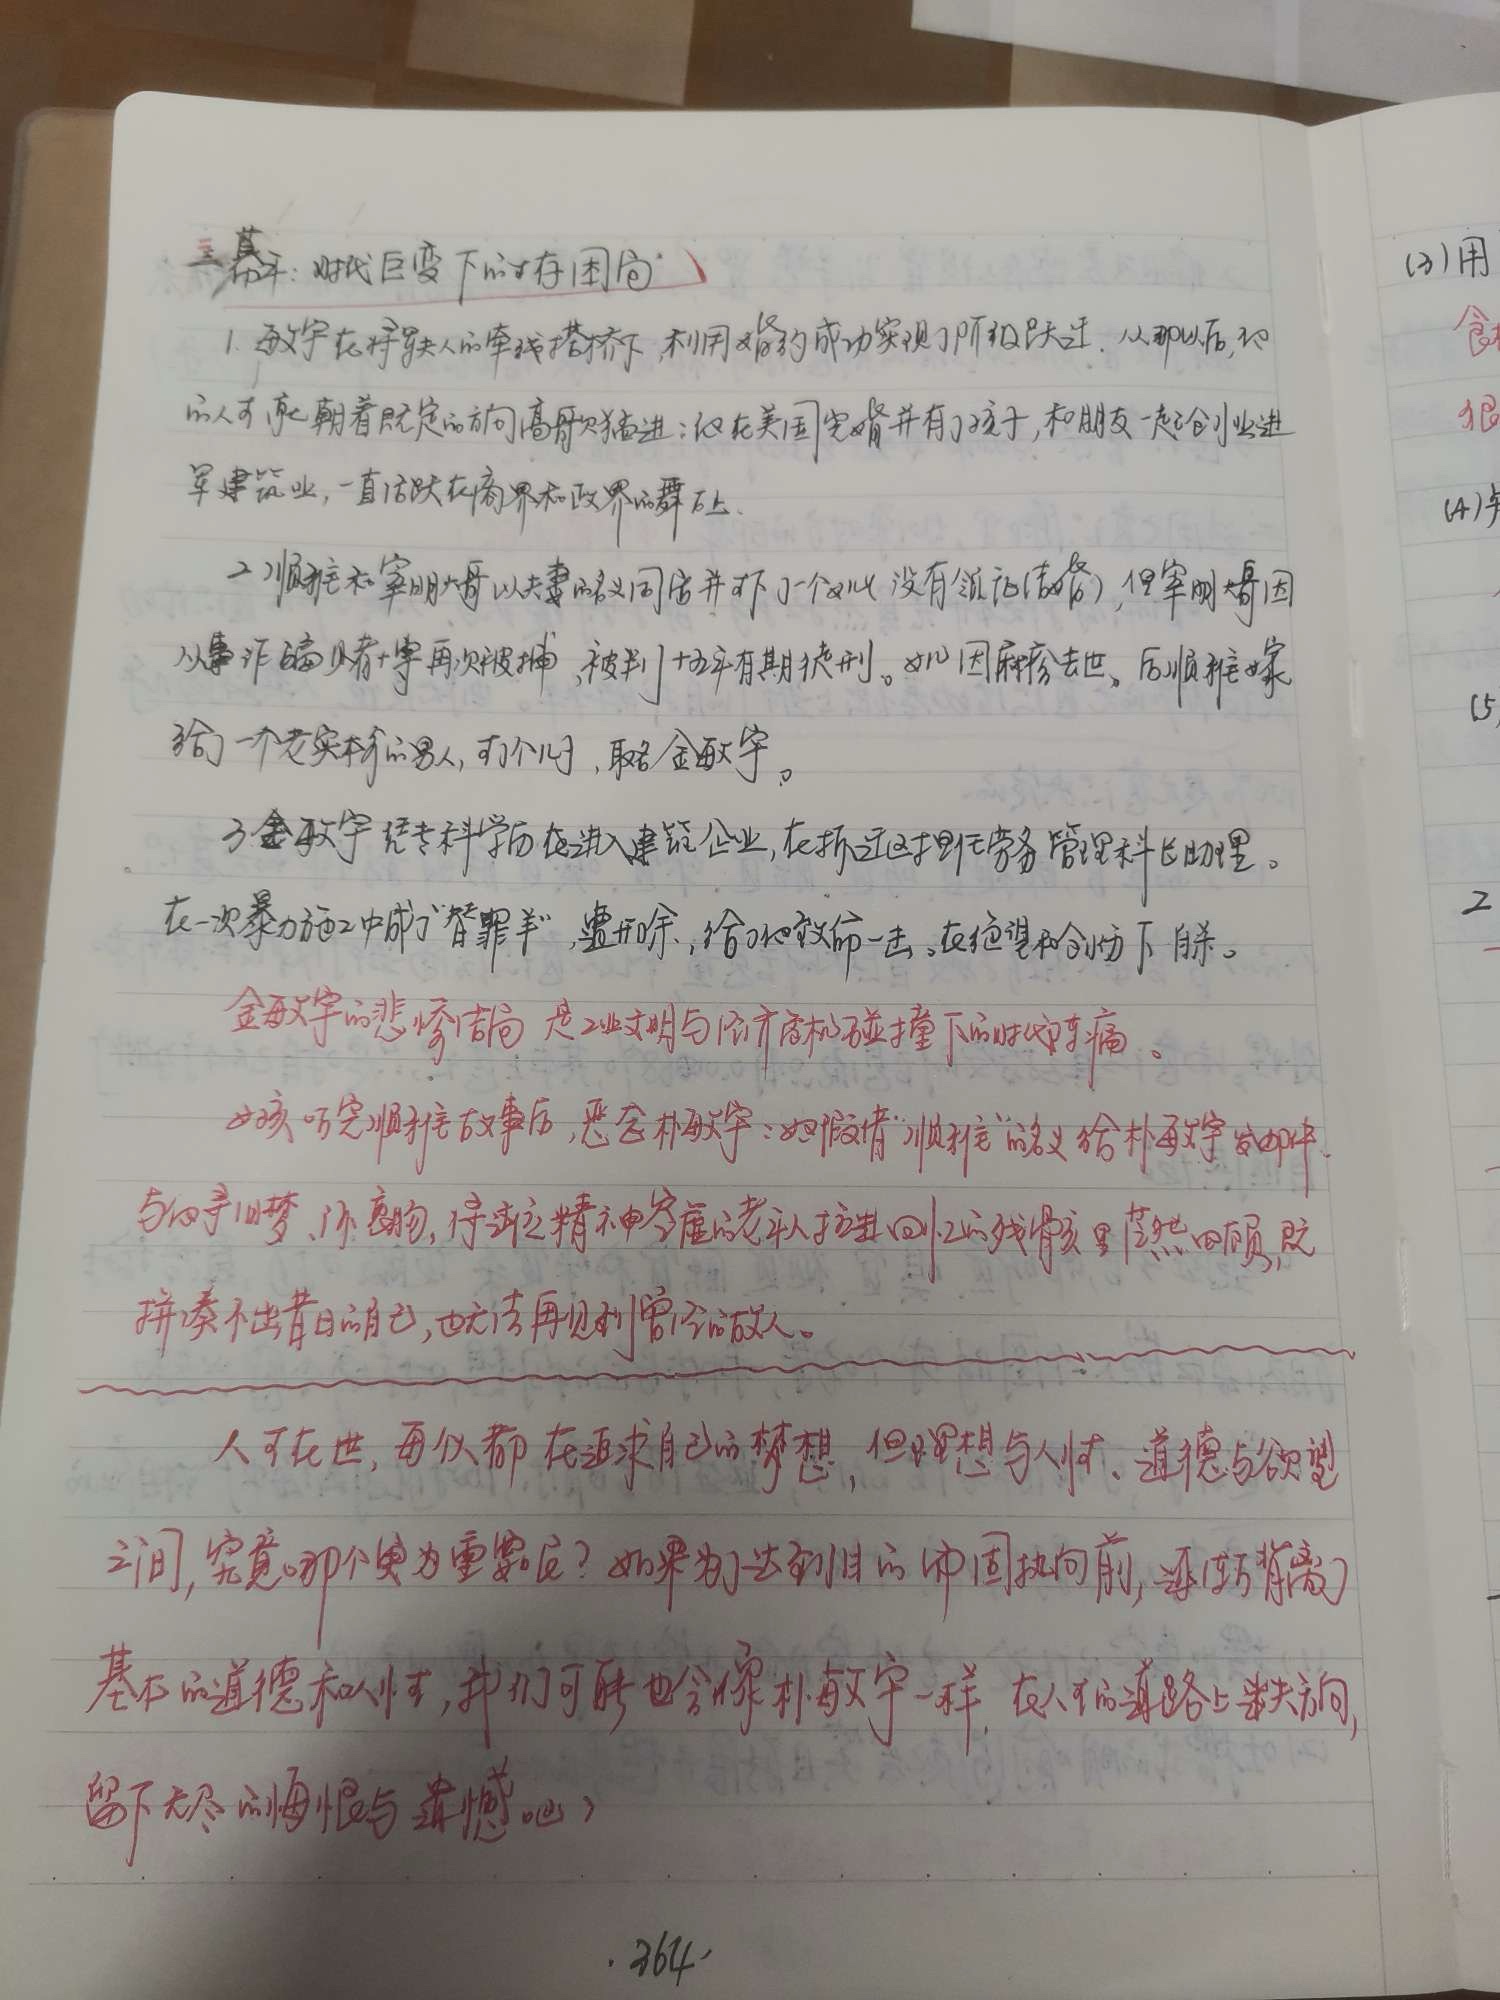 三、暮年：时代巨变下的生存困局
1. 敏宇在将军夫人的牵线搭桥下，利用婚约成功实现了阶级跃迁. 从那以后，他
的人生便朝着既定的方向高歌猛进：他在美国完婚并有了孩子，和朋友一起创业进
军建筑业，一直活跃在商界和政界的舞台上.
2 顺雅和宰明大哥以夫妻的名义同居并生下了一个女儿（没有领证结婚），但宰明大哥因
从事诈骗赌博再次被捕，被判十五年有期徒刑。女儿因麻疹去世。后顺雅嫁
给了一个老实本分的男人，生了个儿子，取名金敏宇。
3 金敏宇凭专科学历在进入建筑企业，在拆迁区担任劳务管理科长助理。
在一次暴力施工中成了“替罪羊”，遭开除，给了他致命一击。在绝望和创伤下自杀。
金敏宇的悲惨结局是工业文明与经济危机碰撞下的时代阵痛。
女孩听完顺雅故事后，惩罚朴敏宇：她假借“顺雅”的名义给朴敏宇发邮件.
与他寻旧梦、诉衷肠，将孤立精神空虚的老年人拉进回忆的残骸里，蓦然回顾，既
拼凑不出昔日的自己，也无法再见到曾经的故人。
人生在世，每个人都在追求自己的梦想，但理想与人性、道德与欲望
之间，究竟哪个更为重要呢？如果为了达到目的而固执向前，逐渐背离了
基本的道德和人性，我们可能也会像朴敏宇一样，在人生的道路上迷失方向，
留下无尽的悔恨与遗憾。
·364·
(3)用
食
狠
(4)
(5)
2